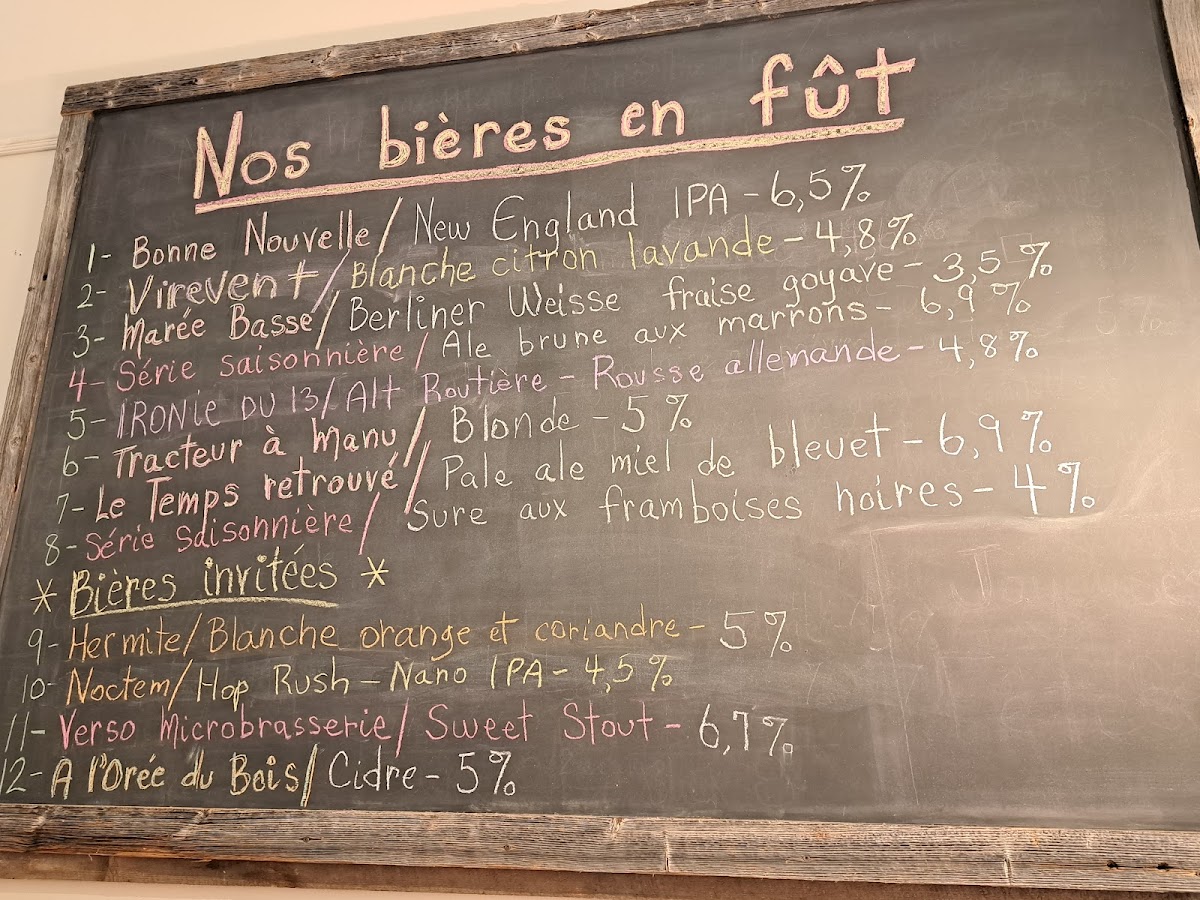 Nos bières en fût
1- Bonne Nouvelle/New England IPA - 6,5%
2- Virevent/Blanche citron lavande - 4,8%
3- Marée Basse/Berliner Weisse fraise goyave - 3,5%
4- Série saisonnière/Ale brune aux marrons - 6,9%
5- IRONIE DU 13/Alt Routière - Rousse allemande - 4,8%
6- Tracteur à Manu/Blonde - 5%
7- Le Temps retrouvé/Pale ale miel de bleuet - 6,9%
8- Série saisonnière/Sure aux framboises noires - 4%
* Bières invitées *
9- Hermite/Blanche orange et coriandre - 5%
10- Noctem/Hop Rush - Nano IPA - 4,5%
11- Verso Microbrasserie/Sweet Stout - 6,7%
12- A l'Orée du Bois/Cidre - 5%